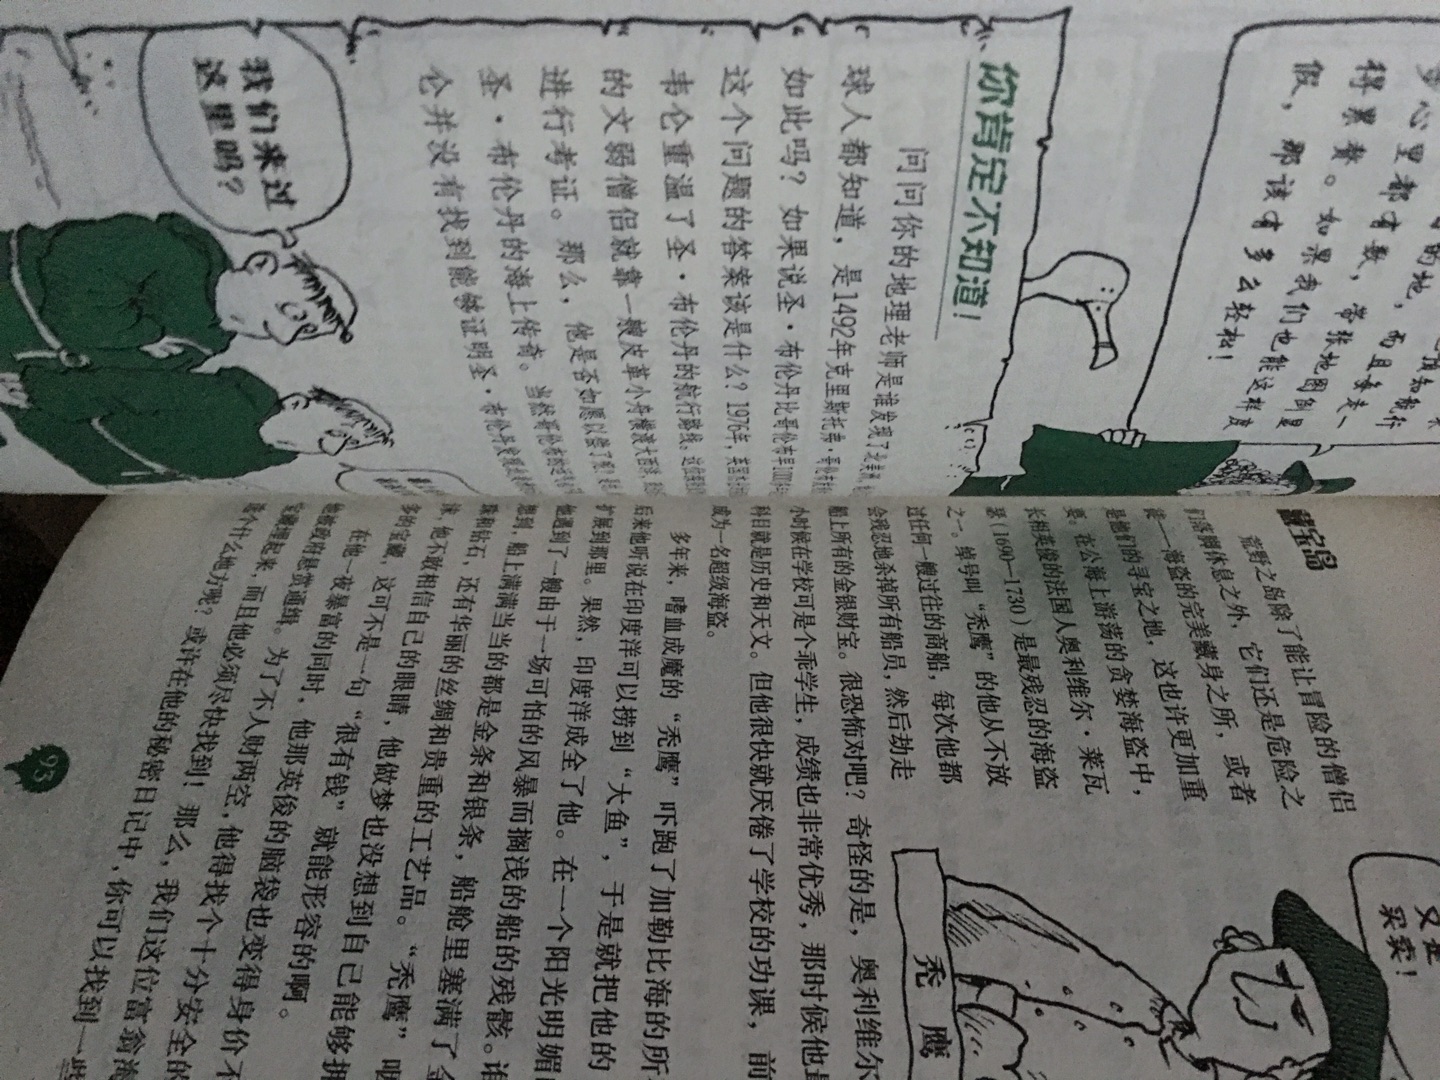 得累赘。如果我们也能这样度
假，那该有多么轻松！
你肯定不知道！
问问你的地理老师是谁发现了
球人都知道，是1492年克里斯托弗·哥伦布
如此吗？如果说圣·布伦丹比哥伦布早
这个问题的答案该是什么？1976年，
韦仑重温了圣·布伦丹的航行路线。
的文弱僧侣就靠一艘皮革小舟横渡大西洋，
进行考证。那么，他是否如愿以偿了呢？
圣·布伦丹的海上传奇。当然
仑并没有找到能够证明圣·布伦丹发现
我们来过
这里吗？
藏宝岛
荒野之岛除了能让冒险的僧侣
们落脚休息之外，它们还是危险之
徒——海盗的完美藏身之所，或者
是他们的寻宝之地，这也许更加重
要。在公海上游荡的贪婪海盗中，
长相英俊的法国人奥利维尔·莱瓦
瑟（1690—1730）是最残忍的海盗
之一。绰号叫“秃鹰”的他从不放
过任何一艘过往的商船，每次他都
会残忍地杀掉所有船员，然后劫走
船上所有的金银财宝。很恐怖对吧？奇怪的是，奥利维尔
小时候在学校可是个乖学生，成绩也非常优秀，那时候他最
科目就是历史和天文。但他很快就厌倦了学校的功课，前
成为一名超级海盗。
多年来，嗜血成魔的“秃鹰”吓跑了加勒比海的所
后来他听说在印度洋可以捞到“大鱼”，于是就把他的
扩展到那里。果然，印度洋成全了他。在一个阳光明媚
他遇到了一艘由于一场可怕的风暴而搁浅的船的残骸。谁
想到，船上满满当当的都是金条和银条，船舱里塞满了金
珠和钻石，还有华丽的丝绸和贵重的工艺品。“秃鹰”
他不敢相信自己的眼睛，他做梦也没想到自己能够拥
多的宝藏，这可不是一句“很有钱”就能形容的啊。
在他一夜暴富的同时，他那英俊的脑袋也变得身价不
他被政府悬赏通缉。为了不人财两空，他得找个十分安全的
宝藏埋起来，而且他必须尽快找到！那么，我们这位富翁海
那个什么地方呢？或许在他的秘密日记中，你可以找到一些
93
又是
买卖！
秃鹰